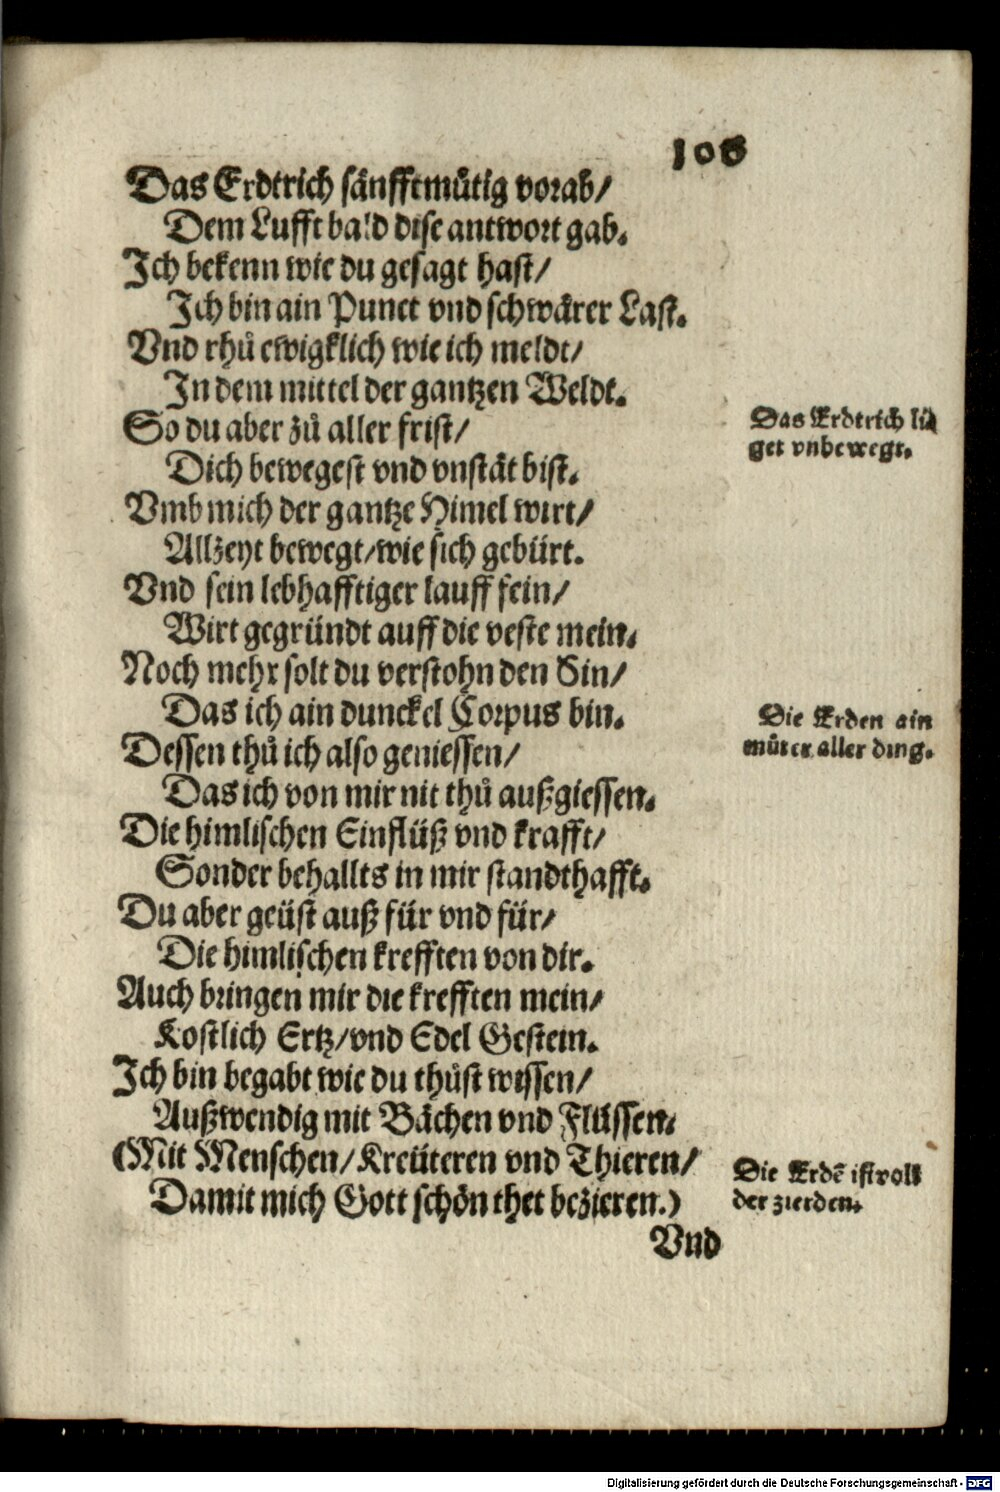 108
Das Erdtrich sänfftmůtig vorab/
Dem Lufft bald dise antwort gab.
Ich bekenn wie du gesagt hast/
Ich bin ain Punct vnd schwärer Last.
Vnd rhů ewigklich wie ich meldt/
In dem mittel der gantzen Weldt.
So du aber zů aller frist/
Dich bewegest vnd vnstät bist.
Vmb mich der gantze Himel wirt/
Allzeyt bewegt/wie sich gebürt.
Vnd sein lebhafftiger lauff fein/
Wirt gegründt auff die veste mein.
Noch mehr solt du verstohn den Sin/
Das ich ain dunckel Corpus bin.
Dessen thů ich also geniessen/
Das ich von mir nit thů außgiessen.
Die himlischen Einflüß vnd krafft/
Sonder behallts in mir standthafft.
Du aber geüst auß für vnd für/
Die himlischen krefften von dir.
Auch bringen mir die krefften mein/
Kostlich Ertz/vnd Edel Gestein.
Ich bin begabt wie du thůst wissen/
Außwendig mit Bächen vnd Flüssen.
(Mit Menschen/Kreüteren vnd Thieren/
Damit mich Gott schön thet bezieren.)
Vnd
Das Erdtrich lig
get vnbewegt.
Die Erden ain
můter aller ding.
Die Erdē ist voll
der zierden.
Digitalisierung gefördert durch die Deutsche Forschungsgemeinschaft - DFG